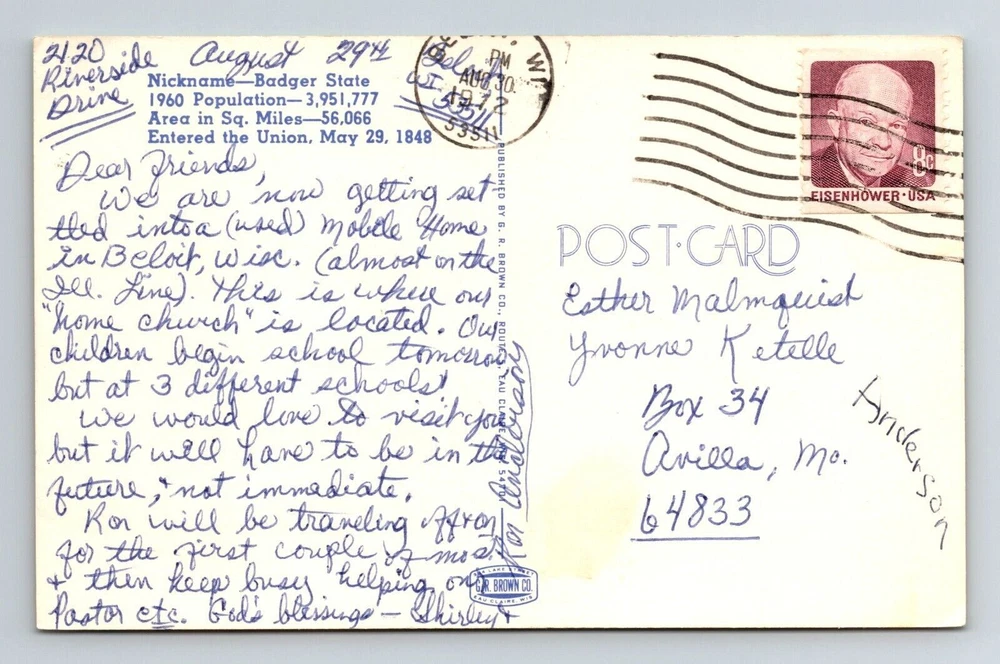 2120
Riverside
Drive
August 29th
Beloit
WI
53511
Nickname—Badger State
1960 Population—3,951,777
Area in Sq. Miles—56,066
Entered the Union, May 29, 1848
Dear Friends,
We are now getting set-
tled into a (used) Mobile Home
in Beloit, Wisc. (almost on the
Ill. Line). This is where our
"home church" is located. Our
children begin school tomorrow
but at 3 different schools!
We would love to visit you
but it will have to be in the
future, + not immediate.
Ron will be traveling off + on
for the first couple of mos.
+ then keep busy helping our
Pastor etc. God's blessings — Shirley +
Ron Anderson
PUBLISHED BY G. R. BROWN CO., ROUTE 3, EAU CLAIRE, WIS.
G.R. BROWN CO.
EAU CLAIRE, WIS.
BELOIT, WI
PM
AUG 30
1972
53511
8c
EISENHOWER·USA
POST·CARD
Esther Malmquist
Yvonne Ketelle
Box 34
Avilla, Mo.
64833
Anderson